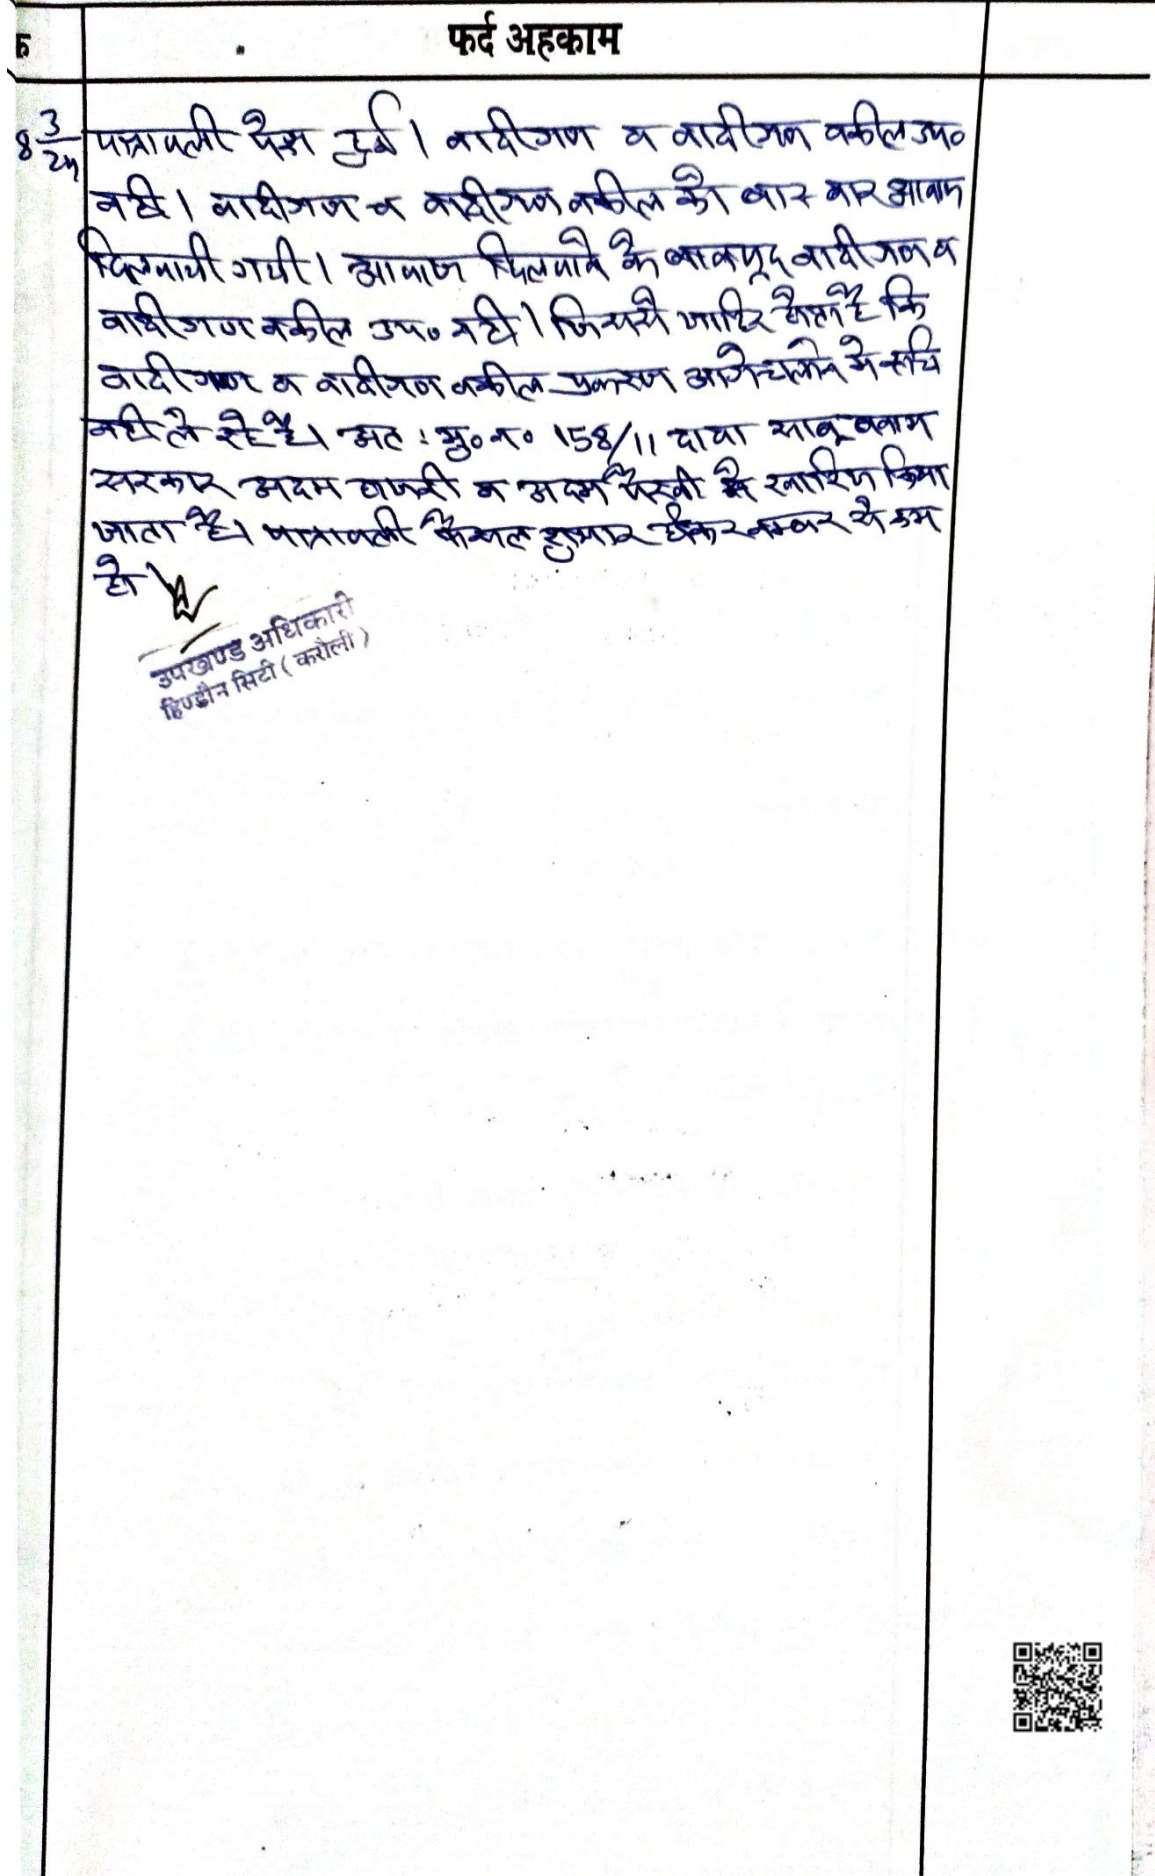 क
फर्द अहकाम
8 3/24 पत्रावली पेश हुई। वादीगण व वादीगण वकील उप०
नही। वादीगण व वादीगण वकील को बार बार आवाज
दिलवायी गयी। आवाज दिलवाने के बावजूद वादीगण व
वादीगण वकील उप० नही। जिससे जाहिर होता है कि
वादीगण व वादीगण वकील प्रकरण आगे चलाने मे रूचि
नही ले रहे है। अत: मु०न० 158/11 दावा साबू बनाम
सरकार अदम हाजरी व अदम पैरवी मे खारिज किया
जाता है। पत्रावली फैसल शुमार होकर नम्बर से कम
हो।
उपखण्ड अधिकारी
हिण्डौन सिटी (करौली)